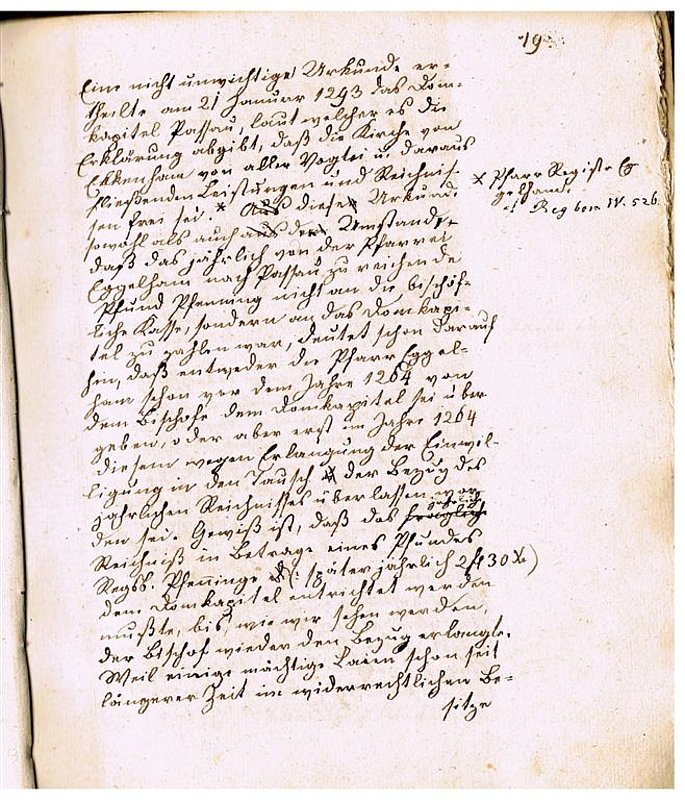 19.
Eine nicht unwichtige Urkunde er-
theilte am 21 Januar 1293 das Dom-
kapitel Passau, laut welcher es die
Erklärung abgibt, daß die Kirche von
Ekkenham von aller Vogtei u. daraus
fließenden Leistungen und Reichnis-
sen frei sei. * Aus diese Urkunde
sowohl als auch aus der Umstand,
daß das jährlich von der Pfarrei
Eggelham nach Passau zu reichende
Pfund Pfenning nicht an die bischöf-
liche Kasse, sondern an das Domkapi-
tel zu zahlen war, deutet schon darauf
hin, daß entweder die Pfarr Eggel-
ham schon vor dem Jahre 1264 von
dem Bischofe dem Domkapitel sei über
geben, oder aber erst im Jahre 1264
diesem wegen Erlangung der Einwil-
ligung in den Tausch der Bezug des
jährlichen Reichnisses überlassen wor
den sei. Gewiß ist, daß das fragliche
Reichniß im Betrage eines Pfundes
Regsb. Pfenninge (: später jährlich 2 f 30 X)
dem Domkapitel entrichtet werden
mußte, bis, wie wir sehen werden,
der Bischof wieder den Bezug erlangte.
Weil einige mächtige Laien schon seit
längerer Zeit im widerrechtlichen Be-
sitze
* Pfarr Registr Eg
gelham.
Reg boic IV. 526.